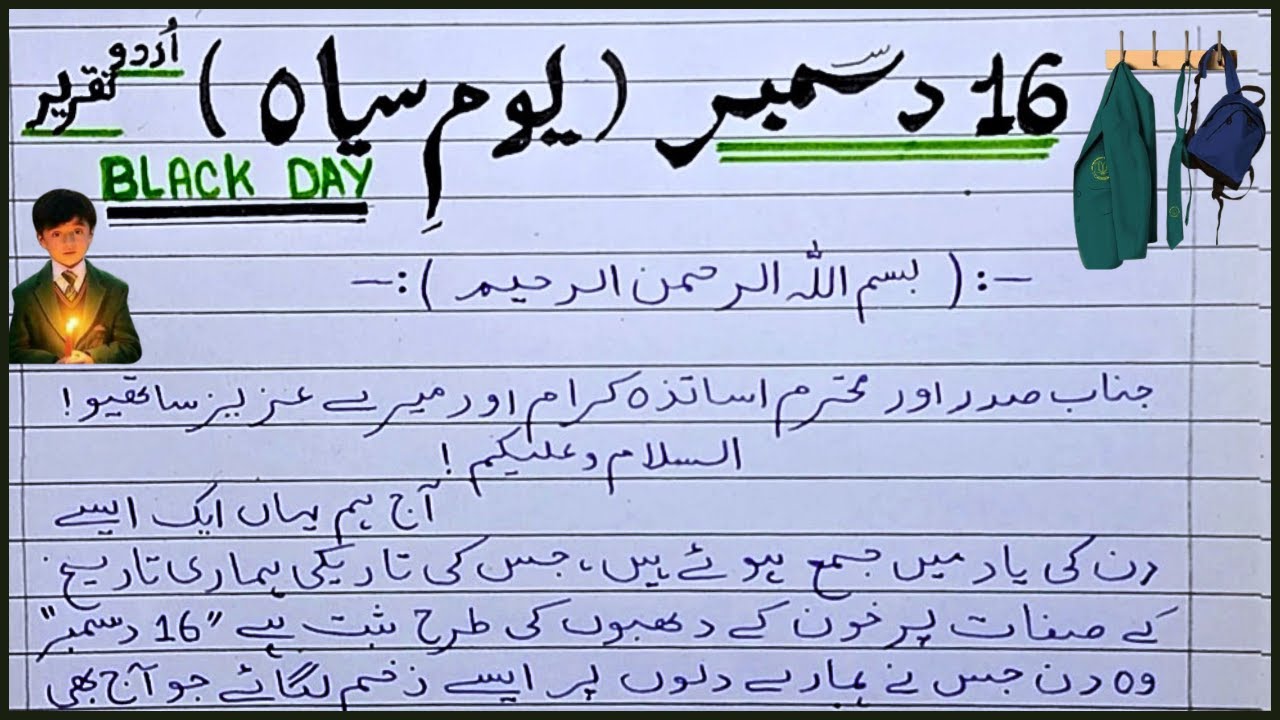 اُردو
تقریر
16 دسمبر (یومِ سیاہ)
BLACK DAY
-:( بسم اللہ الرحمن الرحیم ):-
جناب صدر اور محترم اساتذہ کرام اور میرے عزیز ساتھیو!
السلام وعلیکم!
آج ہم یہاں ایک ایسے
دن کی یاد میں جمع ہوئے ہیں، جس کی تاریکی ہماری تاریخ
کے صفات پر خون کے دھبوں کی طرح ثبت ہے "16 دسمبر"
وہ دن جس نے ہمارے دلوں پر ایسے زخم لگائے جو آج بھی